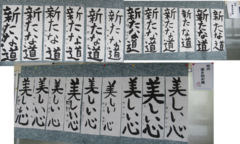 新たな道
新たな道
新たな道
新たな道
新たな道
新たな道
新たな道
新たな道
新たな道
新たな道
新たな道
美しい心
美しい心
美しい心
美しい心
美しい心
美しい心
美しい心
美しい心